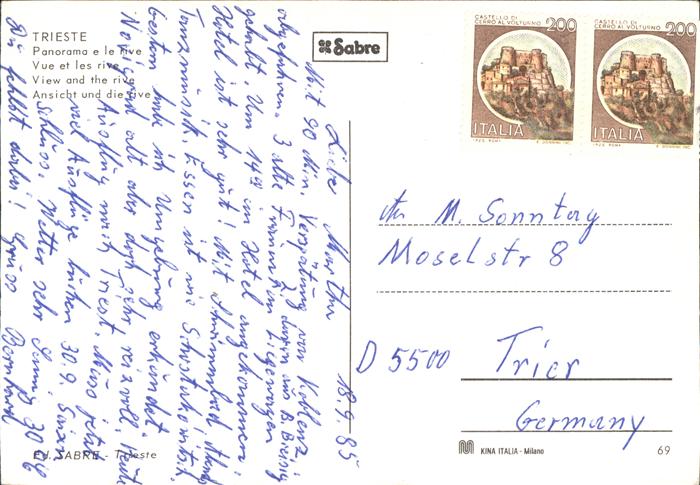 TRIESTE
Panorama e le rive
Vue et les rive
View and the rive
Ansicht und die rive
Sabre
CASTELLO DI
CERRO AL VOLTURNO 200
ITALIA
CASTELLO DI
CERRO AL VOLTURNO 200
ITALIA
M. Sonntag
Moselstr 8
D 5500 Trier
Germany
18.9.85
Liebe Martha
Mit 90 Min. Verspätung von Koblenz
abgefahren. 3 alte in Liegewagen
gehabt. Um 14 im Hotel angekommen
Hotel ist sehr gut! Mit
Tanzmusik. Essen ist wie
Gestern habe ich Umgebung erkundet.
alt aber sehr reizvoll, Heute
Ausflug nach Triest. Muss jetzt
viel Ausflüge buchen 30.9. Saison
Schluss. Wetter sehr Sonnig 30
Du fehlst darin! Gruss Bernhard
Ed. SABRE - Trieste
KINA ITALIA - Milano
69